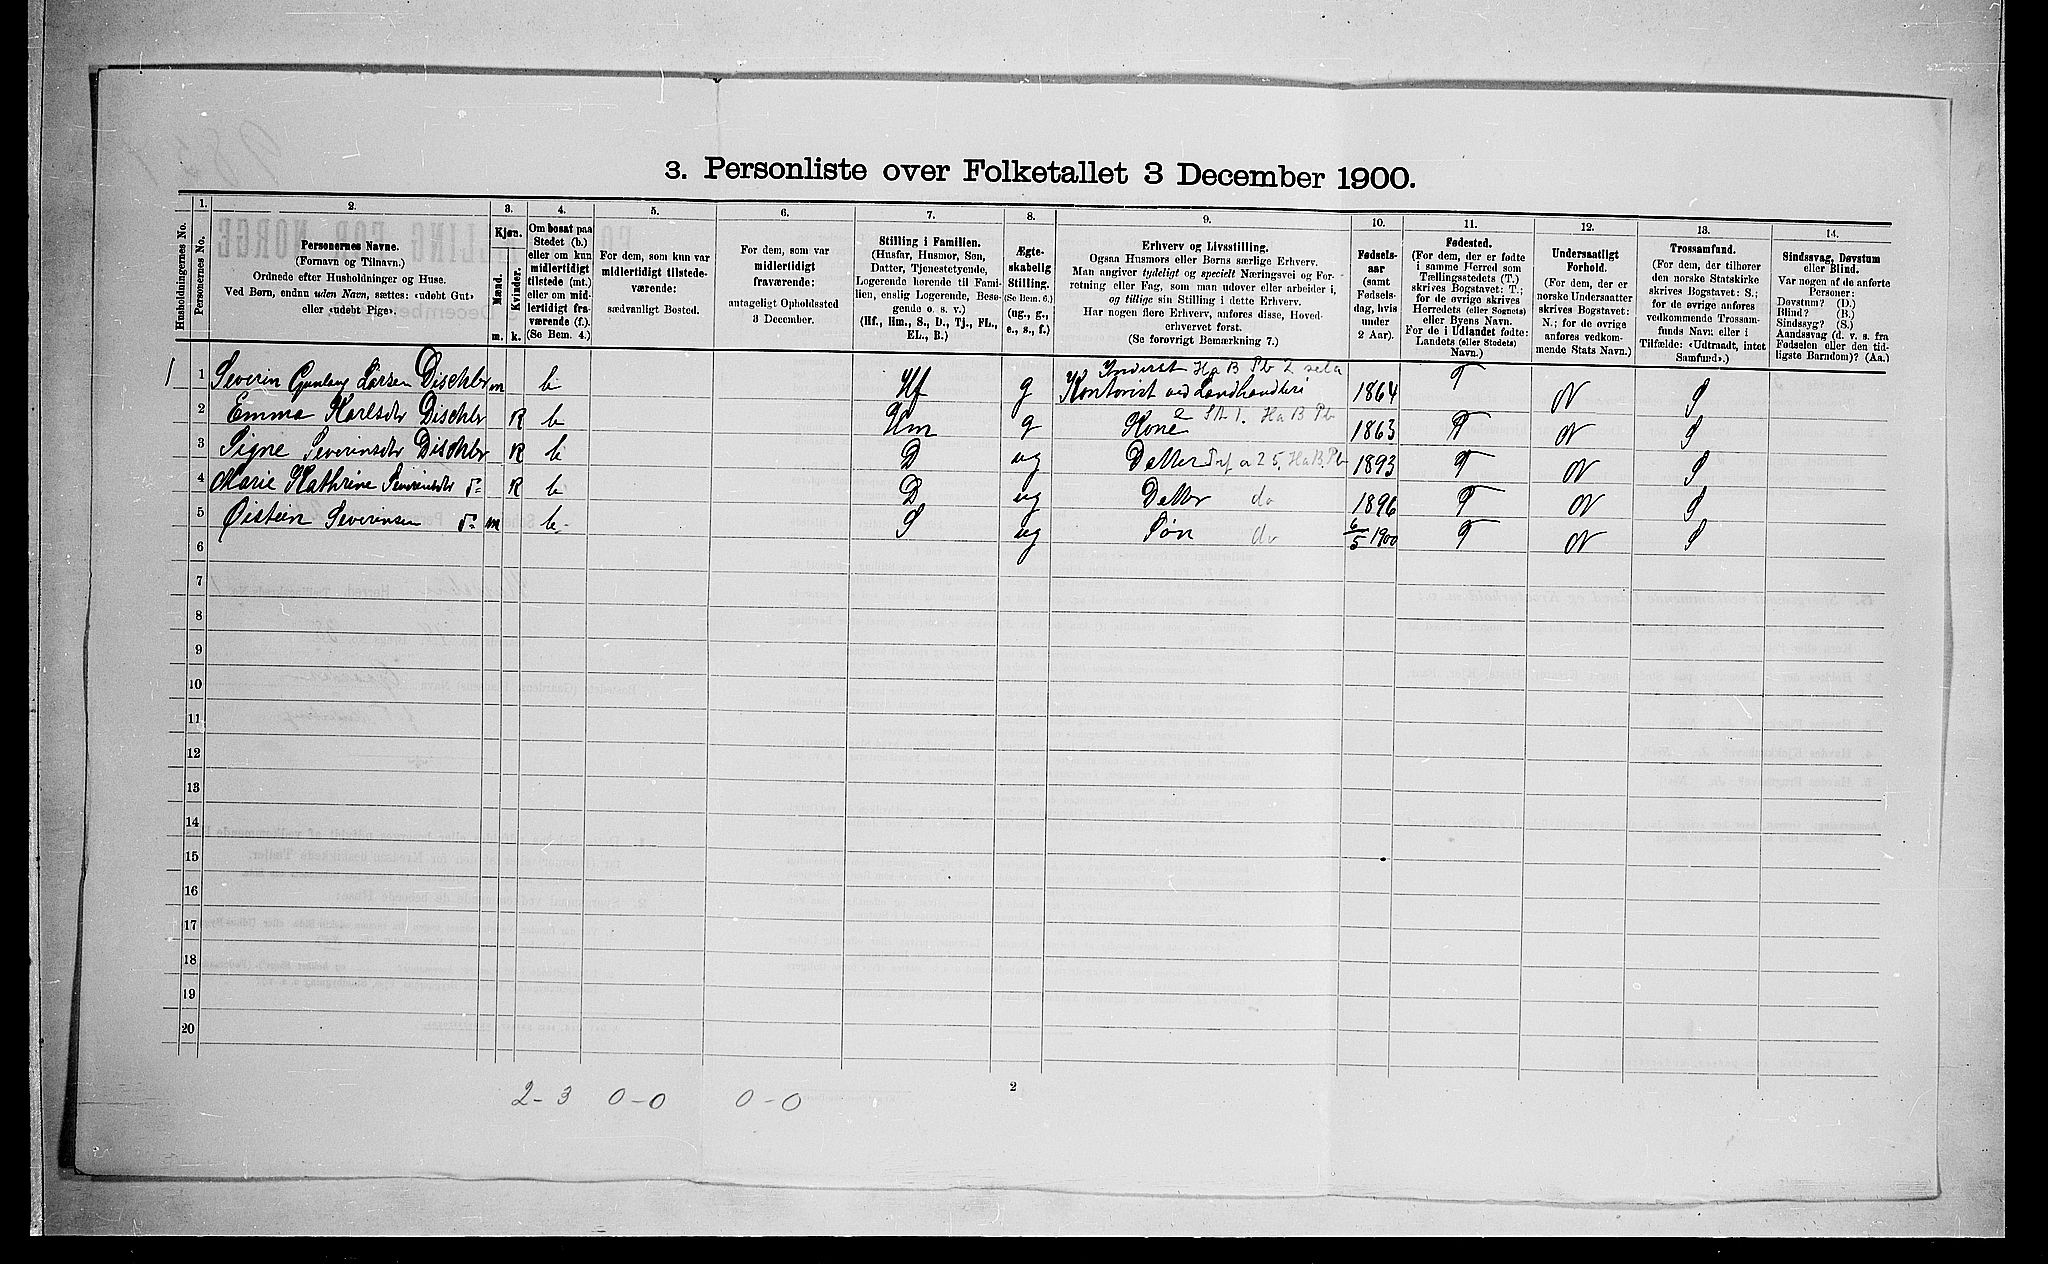 3. Personliste over Folketallet 3 December 1900.
1. 2. 3. 4. 5. 6. 7. 8. 9. 10. 11. 12. 13. 14.
Husholdningernes No.
Personernes No.
Personernes Navne.
(Fornavn og Tilnavn.)
Ordnede efter Husholdninger og Huse.
Ved Børn, endnu uden Navn, sættes: «udøbt Gut»
eller «udøbt Pige».
Kjøn.
Mænd.
Kvinder.
m. k.
Om bosat paa
Stedet (b.)
eller om kun
midlertidigt
tilstede (mt.)
eller om mid-
lertidigt fra-
værende (f.).
(Se Bem. 4.)
For dem, som kun var
midlertidigt tilstede-
værende:
sædvanligt Bosted.
For dem, som var
midlertidigt
fraværende:
antageligt Opholdssted
3 December.
Stilling i Familien.
(Husfar, Husmor, Søn,
Datter, Tjenestetyende,
Logerende hørende til Fami-
lien, enslig Logerende, Besø-
gende o. s. v.)
(Hf., Hm., S., D., Tj., FL.,
EL., B.)
Ægte-
skabelig
Stilling.
(Se Bem. 6.)
(ug., g.,
e., s., f.)
Erhverv og Livsstilling.
Ogsaa Husmors eller Børns særlige Erhverv.
Man angiver tydeligt og specielt Næringsvei og For-
retning eller Fag, som man udover eller arbeider i,
og tillige sin Stilling i dette Erhverv.
Har nogen flere Erhverv, anføres disse, Hoved-
erhvervet først.
(Se forøvrigt Bemærkning 7.)
Fødsels-
aar
(samt
Fødsels-
dag, hvis
under
2 Aar).
Fødested.
(For dem, der er fødte
i samme Herred som
Tællingsstedets (T.)
skrives Bogstavet: T.;
for de øvrige skrives
Herredets (eller Sognets)
eller Byens Navn.
For de i Udlandet fødte:
Landets (eller Stedets)
Navn.)
Undersaatligt
Forhold.
(For dem, der er
norske Undersaatter
skrives Bogstavet:
N.; for de øvrige
anføres vedkom-
mende Stats Navn.)
Trossamfund.
(For dem, der tilhører
den norske Statskirke
skrives Bogstavet: S.;
for de øvrige anføres
vedkommende Trossam-
funds Navn eller i
Tilfælde: «Udtraadt, intet
Samfund».)
Sindssvag, Døvstum
eller Blind.
Var nogen af de anførte
Personer:
Døvstum? (D.)
Blind? (B.)
Sindssyg? (S.)
Aandssvag (d. v. s. fra
Fødselen eller den tid-
ligste Barndom)? (Aa.)
1 1 Severin Larsen m b Hf g Kontorist ved Landhandleri 1864 T N S
2 Emma Karlsdtr k b Hm g Kone 1863 T N S
3 Signe Severinsdtr k b D ug Datter 1893 T N S
4 Marie Kathrine Severinsdtr k b D ug Datter do 1896 T N S
5 Øistein Severinsen m b S ug Søn do 6/5 1900 T N S
6
7
8
9
10
11
12
13
14
15
16
17
18
19
20
2-3 0-0 0-0
2